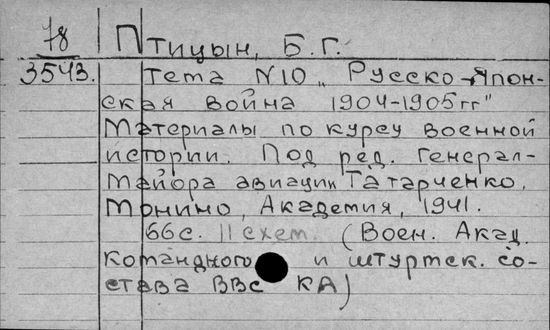 78 Птицын, Б. Г.
3543. Тема N10 „Русско-Япон-
ская война 1904-1905гг"
Материалы по курсу военной
истории. Под ред. Генерал-
Майора авиации Татарченко.
Монино, Академия, 1941.
66с. 11 схем. (Воен. Акад.
командного и штурмск. со-
става ВВС КА)